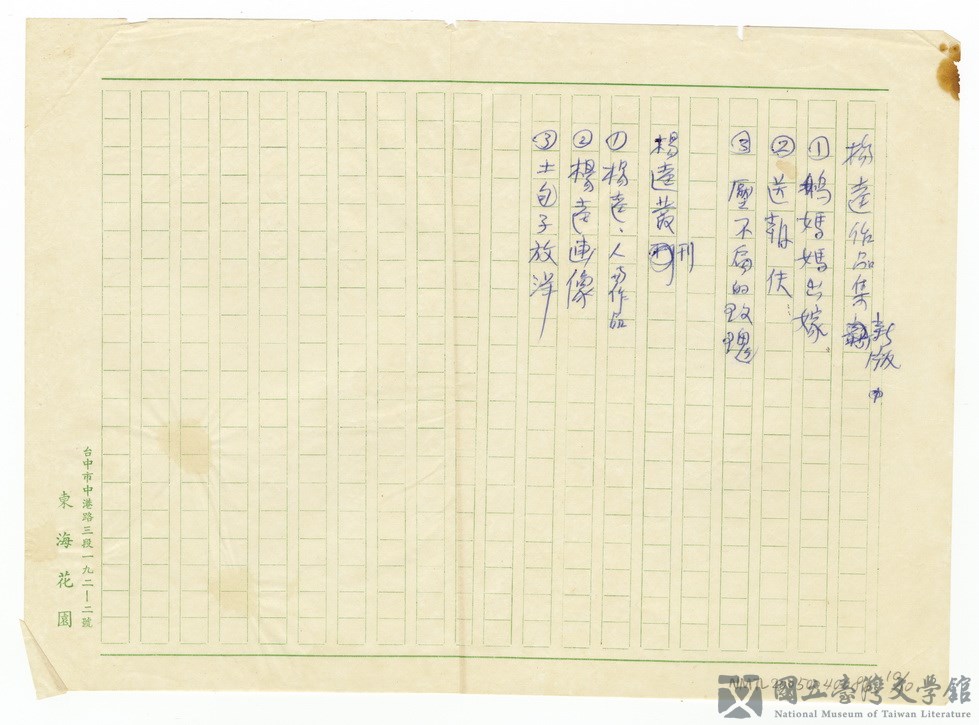 楊逵作品集新版
①鵝媽媽出嫁。
②送報伕
③壓不扁的玫瑰
楊逵叢刊
①楊逵、人與作品
②楊逵画像
③土包子放洋
台中市中港路三段一九二—二號
東海花園
國立臺灣文學館
National Museum of Taiwan Literature